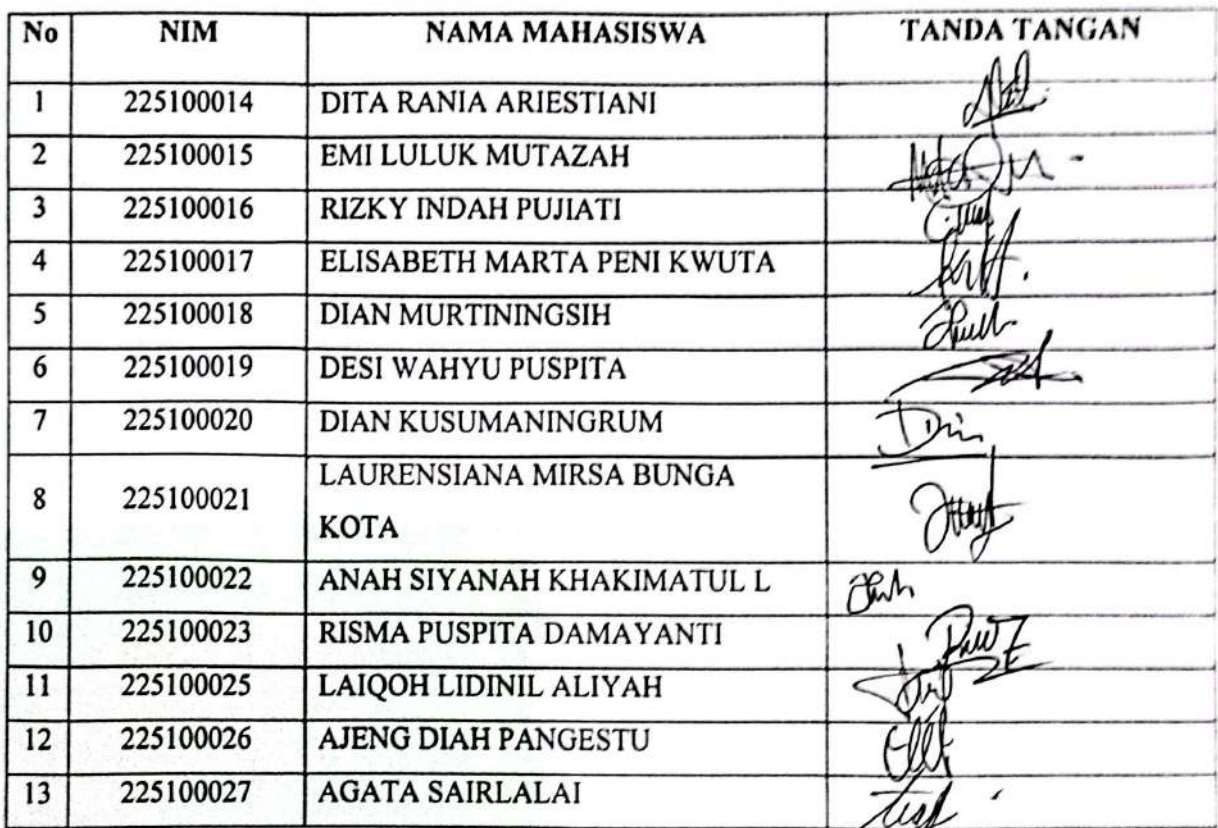 No NIM NAMA MAHASISWA TANDA TANGAN
1 225100014 DITA RANIA ARIESTIANI
2 225100015 EMI LULUK MUTAZAH
3 225100016 RIZKY INDAH PUJIATI
4 225100017 ELISABETH MARTA PENI KWUTA
5 225100018 DIAN MURTININGSIH
6 225100019 DESI WAHYU PUSPITA
7 225100020 DIAN KUSUMANINGRUM
8 225100021 LAURENSIANA MIRSA BUNGA
KOTA
9 225100022 ANAH SIYANAH KHAKIMATUL L
10 225100023 RISMA PUSPITA DAMAYANTI
11 225100025 LAIQOH LIDINIL ALIYAH
12 225100026 AJENG DIAH PANGESTU
13 225100027 AGATA SAIRLALAI